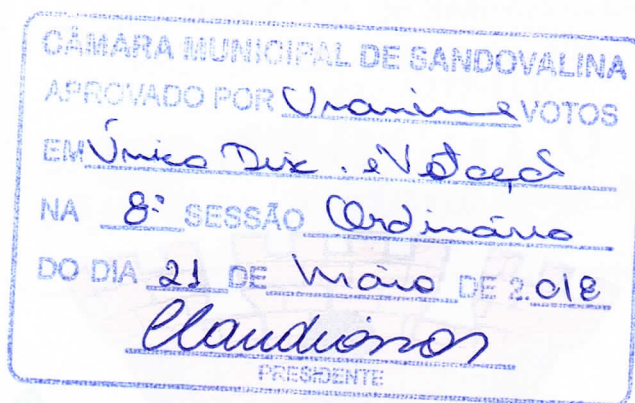 CÂMARA MUNICIPAL DE SANDOVALINA
APROVADO POR Unanime VOTOS
EM Única Disc. e Votaçã
NA 8ª SESSÃO Ordinária
DO DIA 21 DE Maio DE 2.018
PRESIDENTE